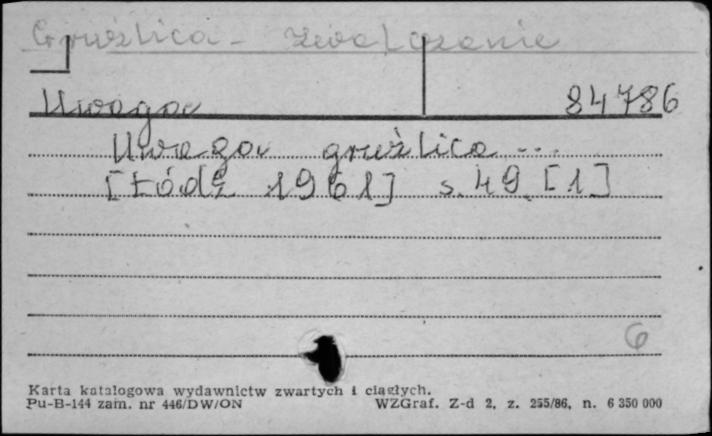 Gruźlica - zwalczanie
Uwaga 84786
Uwaga gruźlica ...
[Łódź 1961] s. 49 [1]
6
Karta katalogowa wydawnictw zwartych i ciągłych.
Pu-B-144 zam. nr 446/DW/ON WZGraf. Z-d 2, z. 255/86, n. 6 350 000